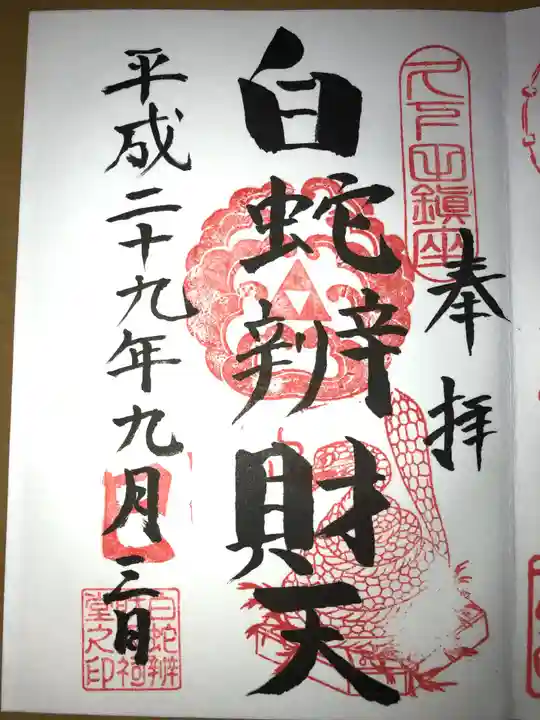 奉拝
白蛇辨財天
平成二十九年九月三日
鎮座
巳
白蛇辨
堂之印